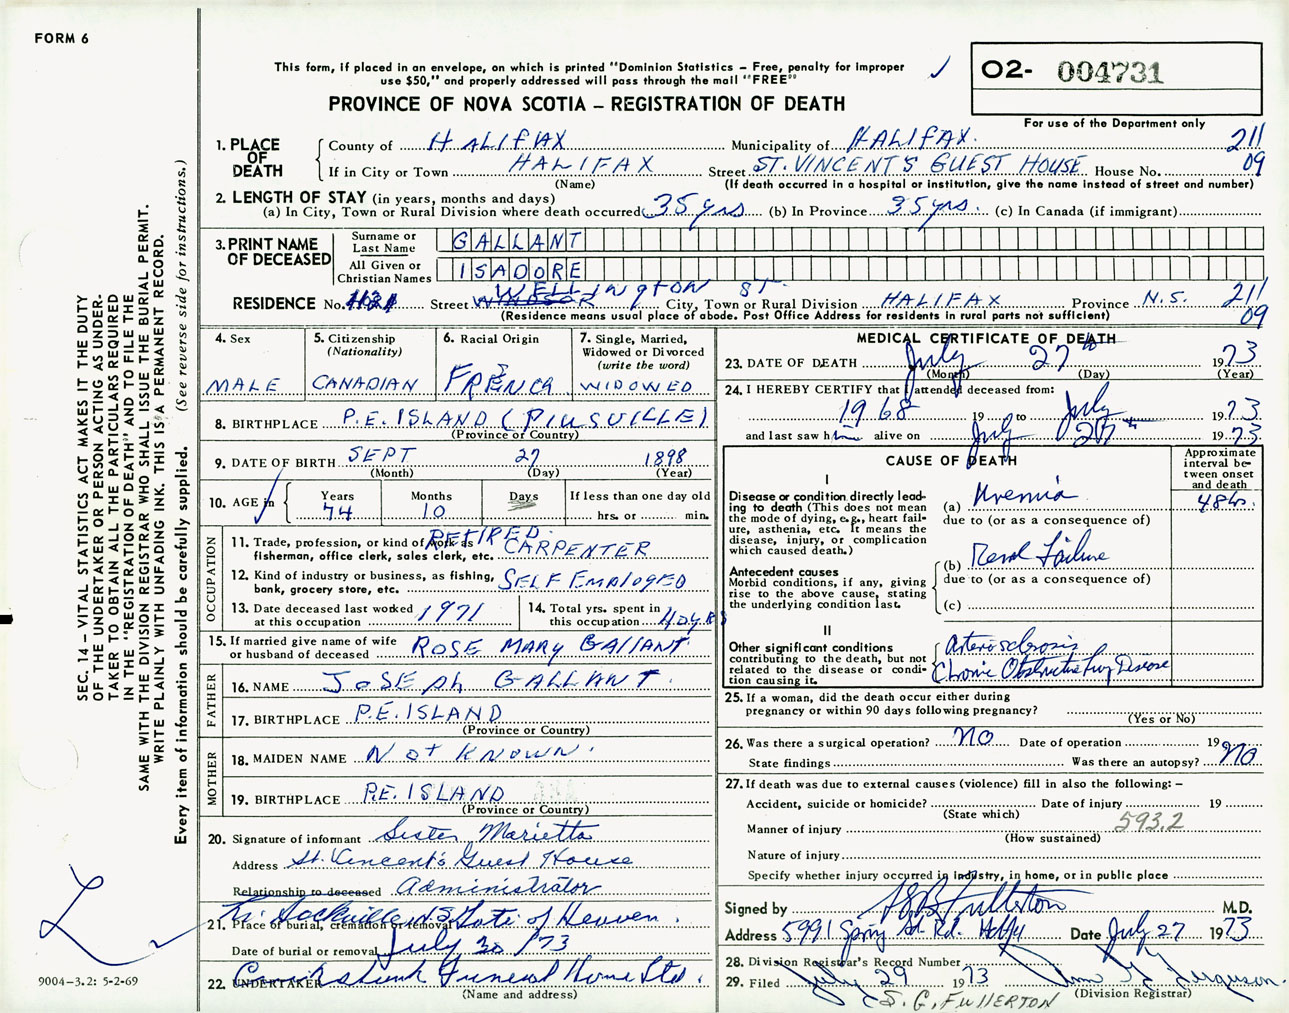 FORM 6
This form, if placed in an envelope, on which is printed "Dominion Statistics – Free, penalty for improper
use $50," and properly addressed will pass through the mail "FREE"
PROVINCE OF NOVA SCOTIA – REGISTRATION OF DEATH
O2- 004731
For use of the Department only
SEC. 14 – VITAL STATISTICS ACT MAKES IT THE DUTY
OF THE UNDERTAKER OR PERSON ACTING AS UNDER-
TAKER TO OBTAIN ALL THE PARTICULARS REQUIRED
IN THE "REGISTRATION OF DEATH" AND TO FILE THE
SAME WITH THE DIVISION REGISTRAR WHO SHALL ISSUE THE BURIAL PERMIT.
WRITE PLAINLY WITH UNFADING INK. THIS IS A PERMANENT RECORD.
Every item of information should be carefully supplied. (See reverse side for instructions.)
1. PLACE OF DEATH
County of HALIFAX Municipality of HALIFAX. 211
If in City or Town HALIFAX Street ST. VINCENT'S GUEST HOUSE House No. 09
(Name) (If death occurred in a hospital or institution, give the name instead of street and number)
2. LENGTH OF STAY (in years, months and days)
(a) In City, Town or Rural Division where death occurred 35 yrs (b) In Province 35 yrs. (c) In Canada (if immigrant)
3. PRINT NAME OF DECEASED
Surname or Last Name GALLANT
All Given or Christian Names ISADORE
WELLINGTON ST.
RESIDENCE No. 1121 Street WINDSOR City, Town or Rural Division HALIFAX Province N.S. 211
(Residence means usual place of abode. Post Office Address for residents in rural parts not sufficient) 09
4. Sex
MALE
5. Citizenship
(Nationality)
CANADIAN
6. Racial Origin
FRENCH
7. Single, Married,
Widowed or Divorced
(write the word)
WIDOWED
8. BIRTHPLACE P.E. ISLAND (PIUSVILLE)
(Province or Country)
9. DATE OF BIRTH SEPT 27 1898
(Month) (Day) (Year)
10. AGE in Years 74 Months 10 Days If less than one day old
hrs. or min.
OCCUPATION
11. Trade, profession, or kind of work as RETIRED.
fisherman, office clerk, sales clerk, etc. CARPENTER
12. Kind of industry or business, as fishing,
bank, grocery store, etc. SELF EMPLOYED
13. Date deceased last worked
at this occupation 1971
14. Total yrs. spent in
this occupation 40 YRS
15. If married give name of wife
or husband of deceased ROSE MARY GALLANT.
FATHER
16. NAME JOSEPH GALLANT.
17. BIRTHPLACE P.E. ISLAND
(Province or Country)
MOTHER
18. MAIDEN NAME NOT KNOWN.
19. BIRTHPLACE P.E. ISLAND
(Province or Country)
20. Signature of informant Sister Marietta
Address St. Vincent's Guest House
Relationship to deceased Administrator
Sackville N.S. Gate of Heaven.
21. Place of burial, cremation or removal
Date of burial or removal July 30 / 73
22. UNDERTAKER Cruikshank Funeral Home Ltd.
(Name and address)
MEDICAL CERTIFICATE OF DEATH
23. DATE OF DEATH July 27th 1973
(Month) (Day) (Year)
24. I HEREBY CERTIFY that I attended deceased from:
1968 19 to July 1973
and last saw him alive on July 27th 1973
CAUSE OF DEATH
Approximate
interval be-
tween onset
and death
I
Disease or condition directly lead-
ing to death (This does not mean
the mode of dying, e.g., heart fail-
ure, asthenia, etc. It means the
disease, injury, or complication
which caused death.)
(a) Uremia 48 hr.
due to (or as a consequence of)
Antecedent causes
Morbid conditions, if any, giving
rise to the above cause, stating
the underlying condition last.
(b) Renal Failure
due to (or as a consequence of)
(c)
II
Other significant conditions
contributing to the death, but not
related to the disease or condi-
tion causing it.
Arteriosclerosis
Chronic Obstructive Lung Disease
25. If a woman, did the death occur either during
pregnancy or within 90 days following pregnancy?
(Yes or No)
26. Was there a surgical operation? NO Date of operation 19
State findings Was there an autopsy? NO
27. If death was due to external causes (violence) fill in also the following: –
Accident, suicide or homicide? Date of injury 19
(State which)
Manner of injury 593.2
(How sustained)
Nature of injury
Specify whether injury occurred in industry, in home, or in public place
Signed by SG Fullerton M.D.
Address 5991 Spring Gd. Rd. Hfx Date July 27 1973
28. Division Registrar's Record Number
29. Filed July 29 1973
(Division Registrar)
S. G. FULLERTON
9004–3.2: 5-2-69